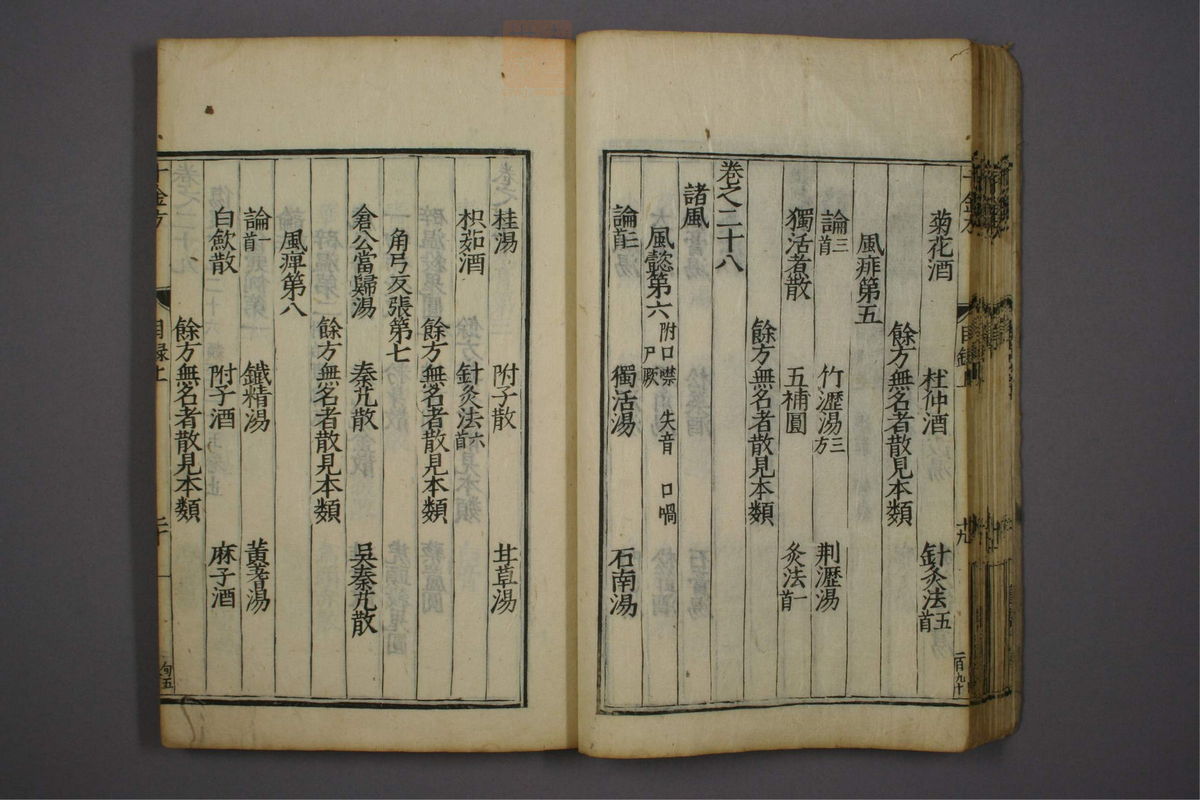 菊花酒 杜仲酒 針灸法五首
餘方無名者散見本類
風痱第五
論三首 竹瀝湯三方 荆瀝湯
獨活煮散 五補圓 灸法一首
餘方無名者散見本類
卷之二十八
諸風
風懿第六 附口噤 失音 口喎 尸厥
論二首 獨活湯 石南湯
桂湯 附子散 甘草湯
枳茹酒 針灸法六首
餘方無名者散見本類
角弓反張第七
倉公當歸湯 秦艽散 吳秦艽散
餘方無名者散見本類
風痺第八
論一首 鐵精湯 黃耆湯
白歛散 附子酒 麻子酒
餘方無名者散見本類
千金方 目録上